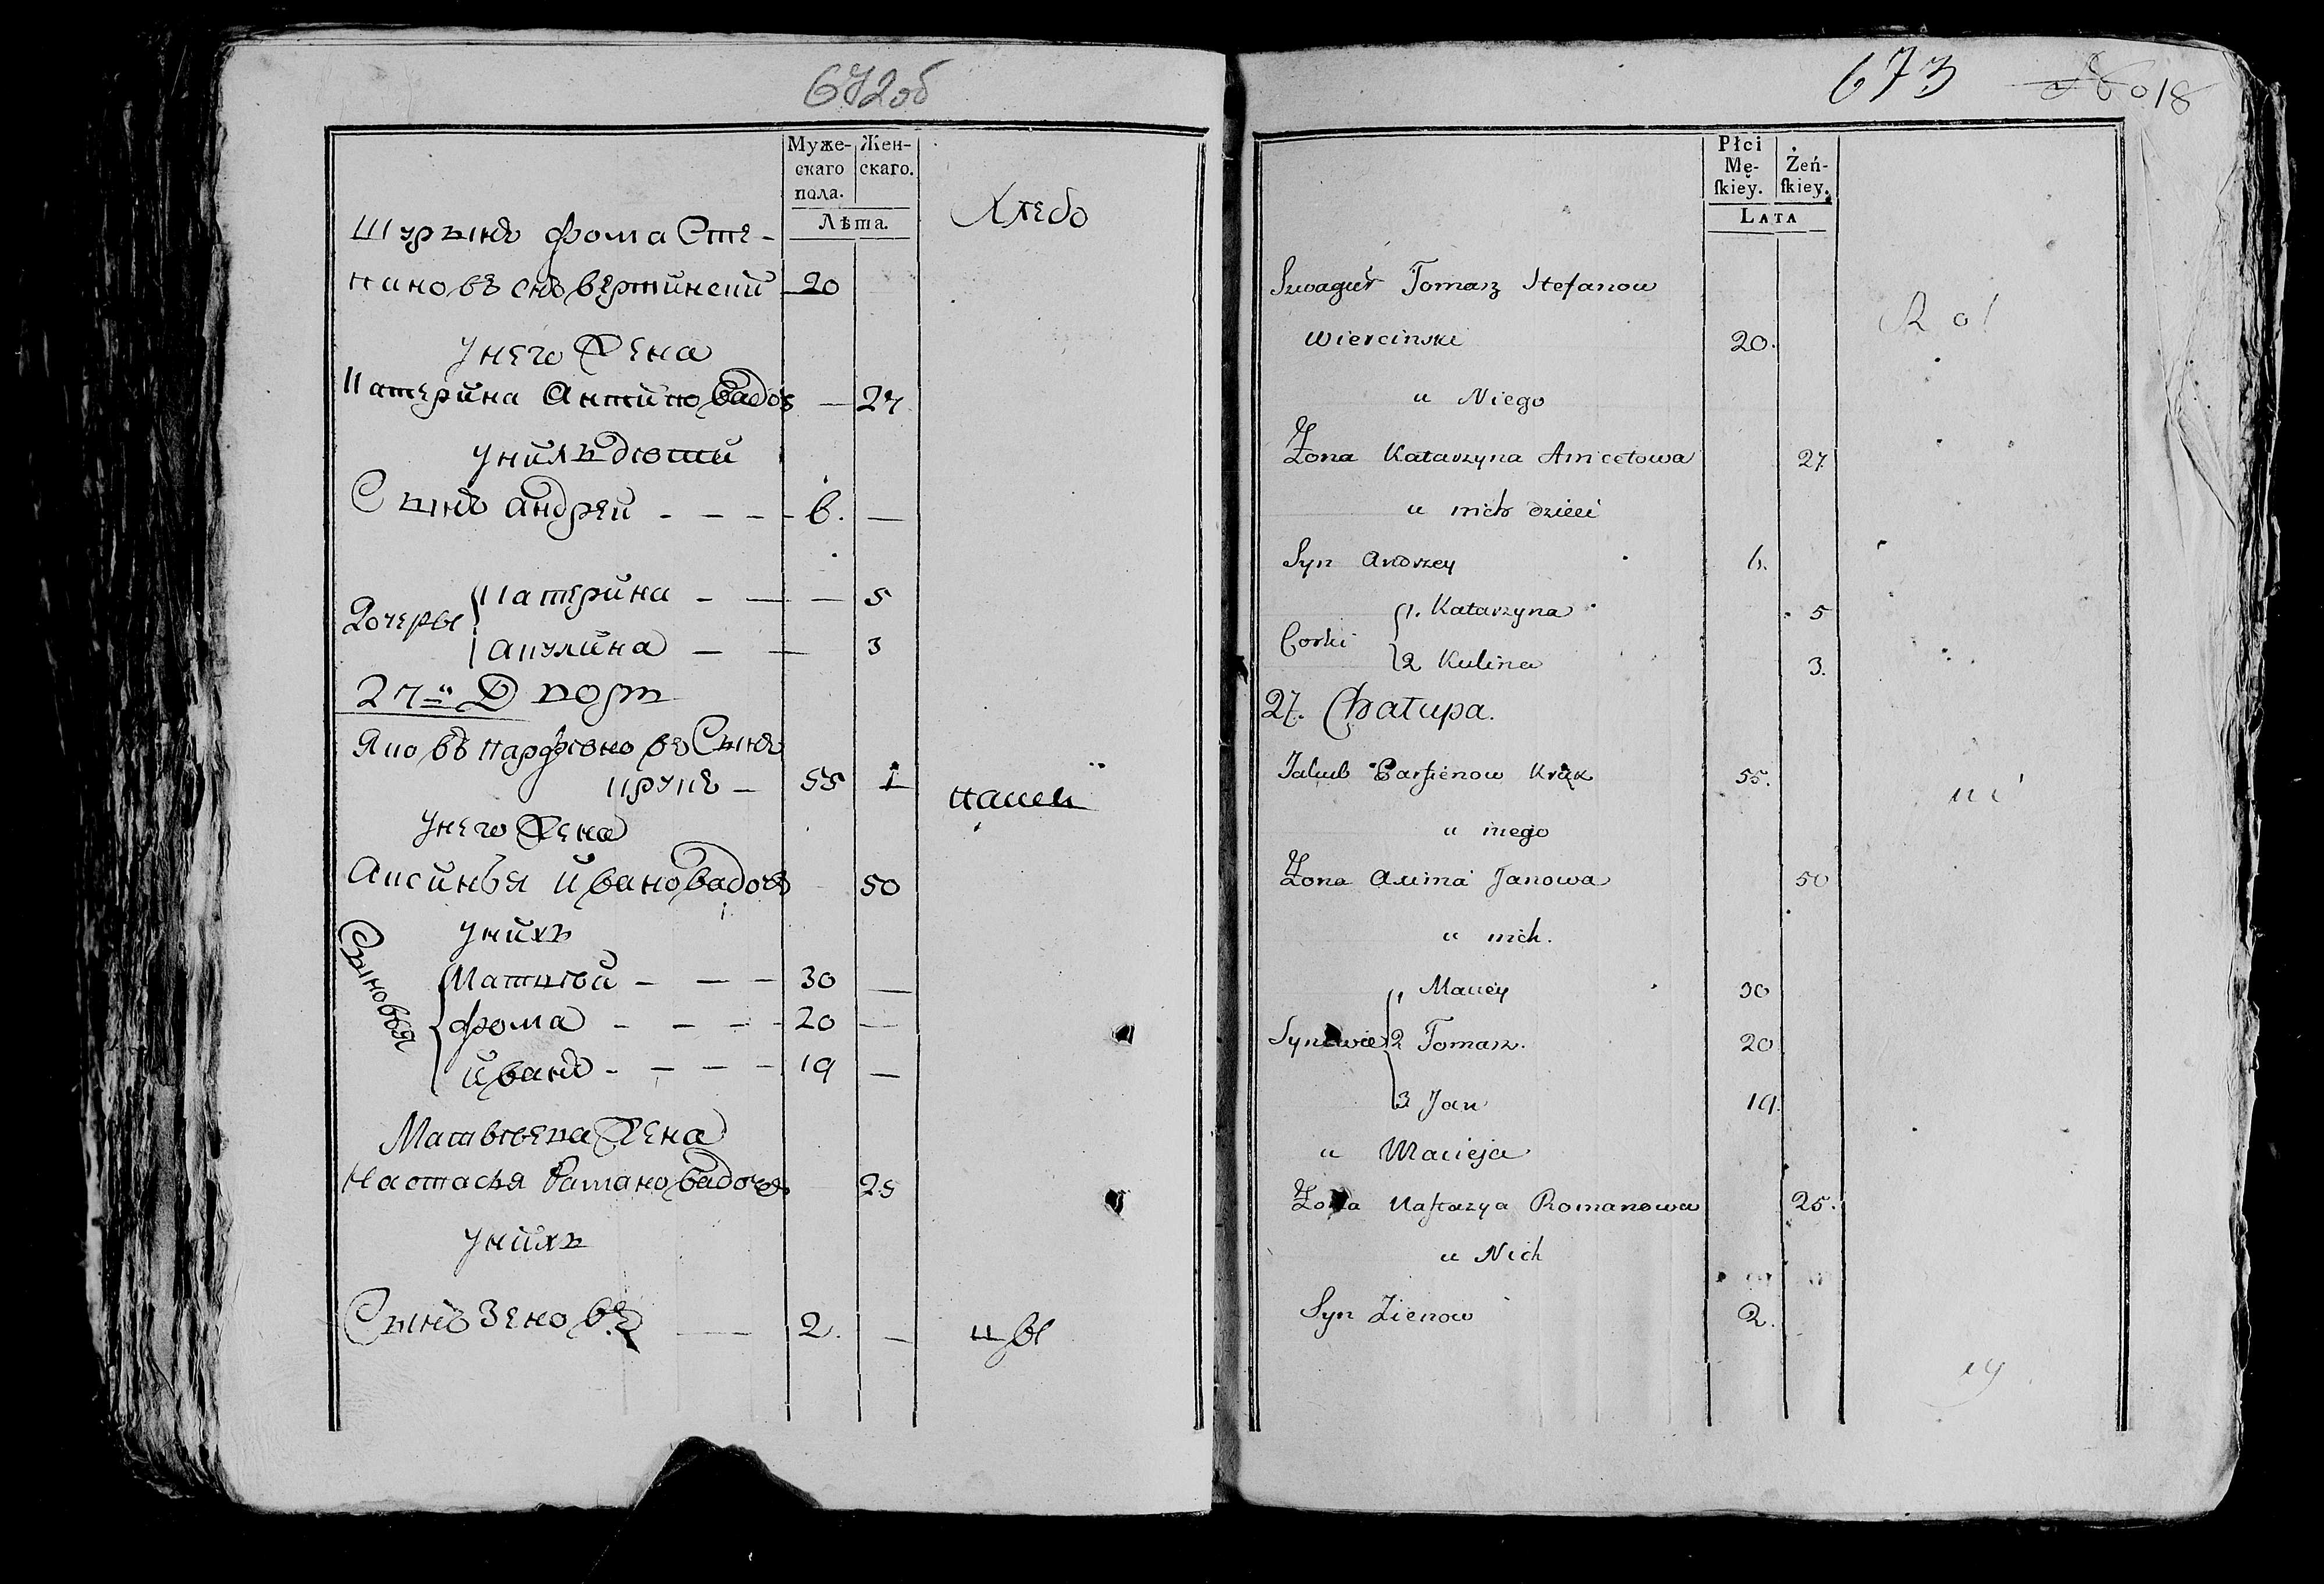 672об
Муже-
скаго
пола.
Жен-
скаго.
Лѣта.
Хлебо
Шурынъ фома Сте-
пановъ снъ вертинский 20
унего Жена
Катерина Антиповадоч — 27
унихъ дети
Сынъ андрей - - - - 6. —
Дочеры Катерина - — — 5
акулина — — 3
27й Дворъ
Яковъ парфеновъ Сынъ
крукъ — 55 1
пашен
унего Жена
Аксинья ивановадочь 50
унихъ
Сыновья
Матвей - — - — 30 —
фома - - - - 20 —
иванъ - - - - 19 —
Матвеева Жена
Настасья Рамановадочь 25
унихъ
Сынъ Зеновей — 2. —
673 018
Płci
Mę-
ſkiey.
Żeń-
ſkiey.
LATA
Szwagier Tomasz Stefanow
Wiercinski 20.
u Niego
Żona Katarzyna Anicetowa 27
u nich dzieci
Syn Andrzey 6.
Corki 1. Katarzyna 5
2 Kulina 3.
27. Chałupa.
Jakub Parfienow Kruk 55.
u niego
Żona Axinia Janowa 50
u nich.
Synowie 1 Maciey 30
2 Tomasz. 20
3 Jan 19.
u Macieja
Żona Naſtazya Romanowa 25.
u Nich
Syn Zienow 2.